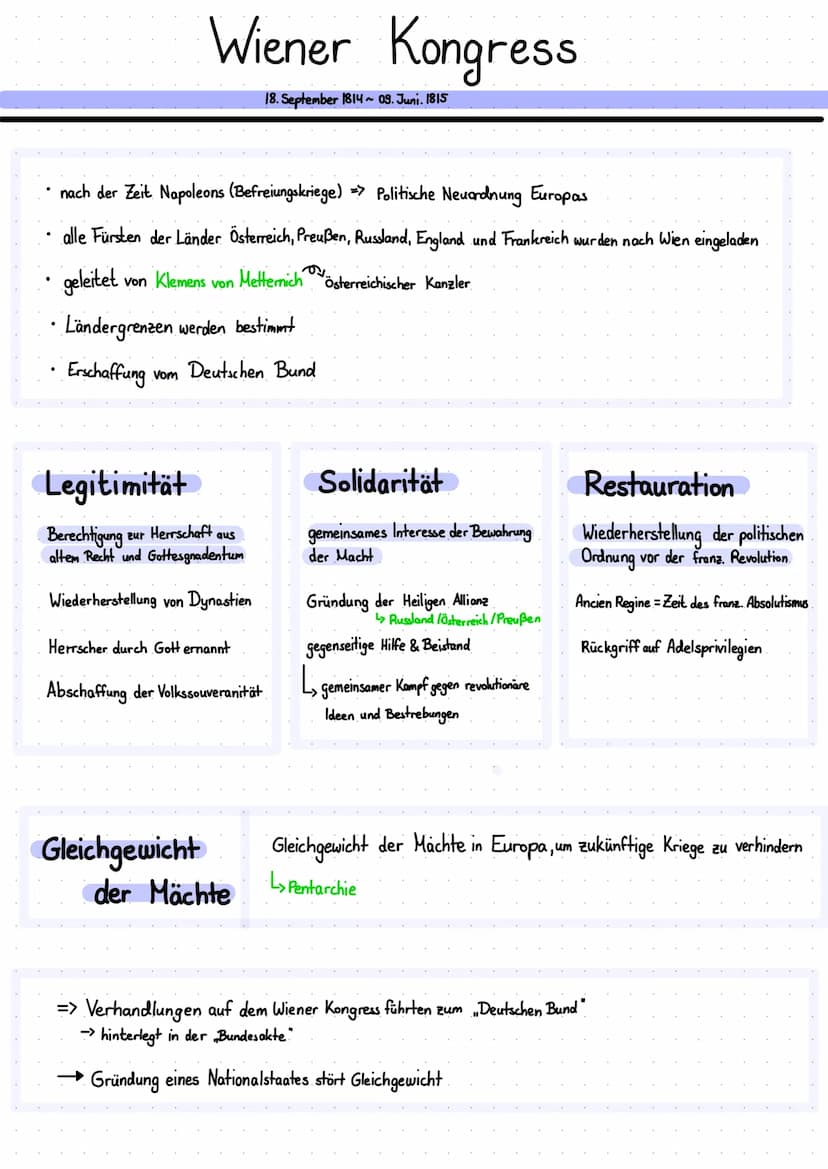 Wiener Kongress
18. September 1814 ~ 09. Juni. 1815
• nach der Zeit Napoleons (Befreiungskriege) => Politische Neuordnung Europas
• alle Fürsten der Länder Österreich, Preußen, Russland, England und Frankreich wurden nach Wien eingeladen
• geleitet von Klemens von Metternich Österreichischer Kanzler
• Ländergrenzen werden bestimmt
• Erschaffung vom Deutschen Bund
Legitimität
Berechtigung zur Herrschaft aus
altem Recht und Gottesgnadentum
Wiederherstellung von Dynastien
Herrscher durch Gott ernannt
Abschaffung der Volkssouveranität
Solidarität
gemeinsames Interesse der Bewahrung
der Macht
Gründung der Heiligen Allianz
↳ Russland/Österreich/Preußen
gegenseitige Hilfe & Beistand
↳ gemeinsamer Kampf gegen revolutionäre
Ideen und Bestrebungen
Restauration
Wiederherstellung der politischen
Ordnung vor der franz. Revolution
Ancien Regine = Zeit des franz. Absolutismus
Rückgriff auf Adelsprivilegien
Gleichgewicht
der Mächte
Gleichgewicht der Mächte in Europa, um zukünftige Kriege zu verhindern
↳ Pentarchie
=> Verhandlungen auf dem Wiener Kongress führten zum „Deutschen Bund"
→ hinterlegt in der „Bundesakte"
→ Gründung eines Nationalstaates stört Gleichgewicht